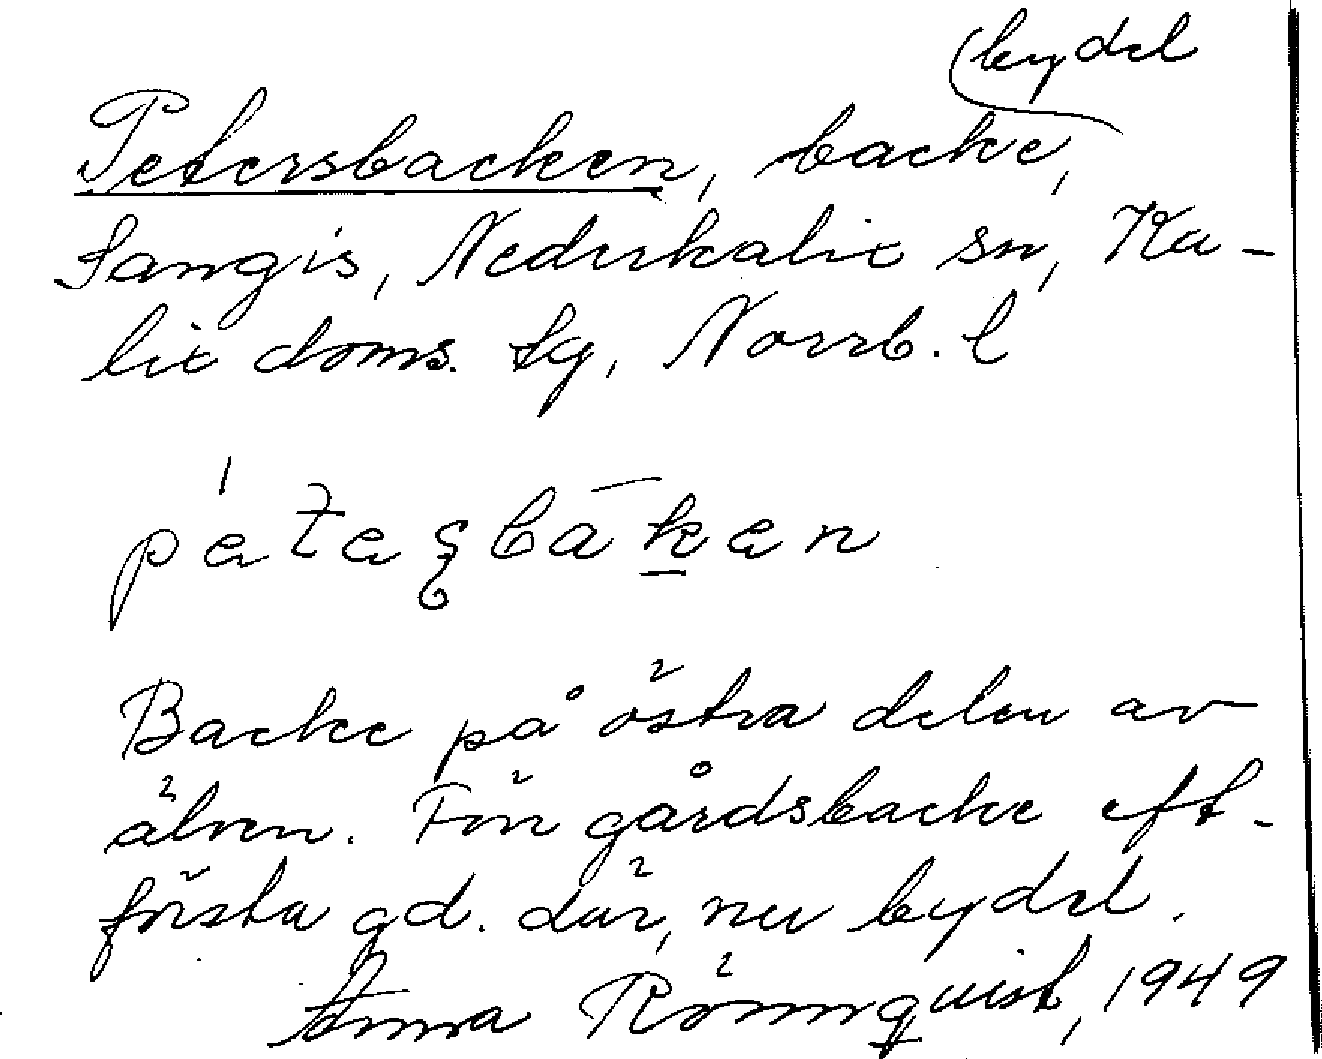 bydel
Petersbacken, backe,
Sangis, Nederkalix sn, Ka-
lix doms. sg, Norrb. l
pétaʂbákan
Backe på östra delen av
älven. Förr gårdsbacke eft.
första gd. där, nu bydel.
Anna Rönnquist, 1949